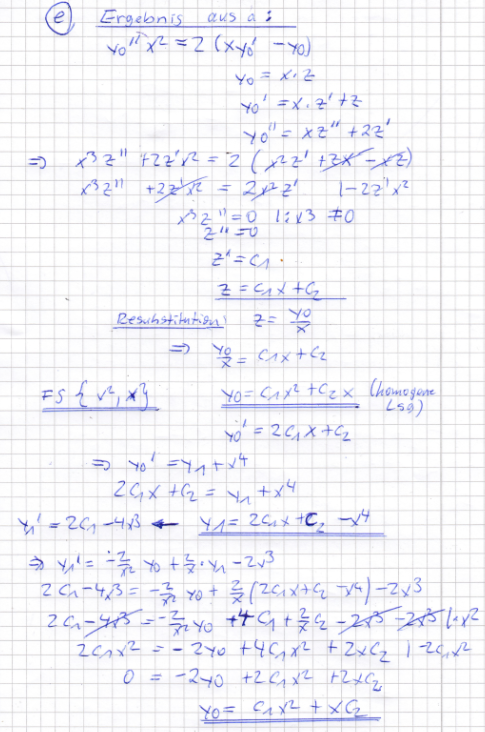 e) Ergebnis aus a:
y0'' x² = 2 (xy0' - y0)
y0 = x · z
y0' = x · z' + z
y0'' = xz'' + 2z'
=> x³z'' + 2z'x² = 2 (x²z' + zx - xz)
x³z'' + 2z'x² = 2x²z' |-2z'x²
x³z'' = 0 |: x3 ≠0
z'' = 0
z' = C1
z = C1x + C2
Resubstitution: z = y0/x
=> y0/x = C1x + C2
FS { x², x} y0 = C1x² + C2x (homogene Lsg)
y0' = 2C1x + C2
=> y0' = y1 + x⁴
2C1x + C2 = y1 + x⁴
y1' = 2C1 - 4x³ ← y1 = 2C1x + C2 - x⁴
=> y1' = -2/x² y0 + 2/x · y1 - 2x³
2C1 - 4x³ = -2/x² y0 + 2/x (2C1x + C2 - x⁴) - 2x³
2C1 - 4x³ = -2/x² y0 + 4C1 + 2/x C2 - 2x³ - 2x³ | · x²
2C1x² = - 2y0 + 4C1x² + 2xC2 | -2C1x²
0 = -2y0 + 2C1x² + 2xC2
y0 = C1x² + xC2